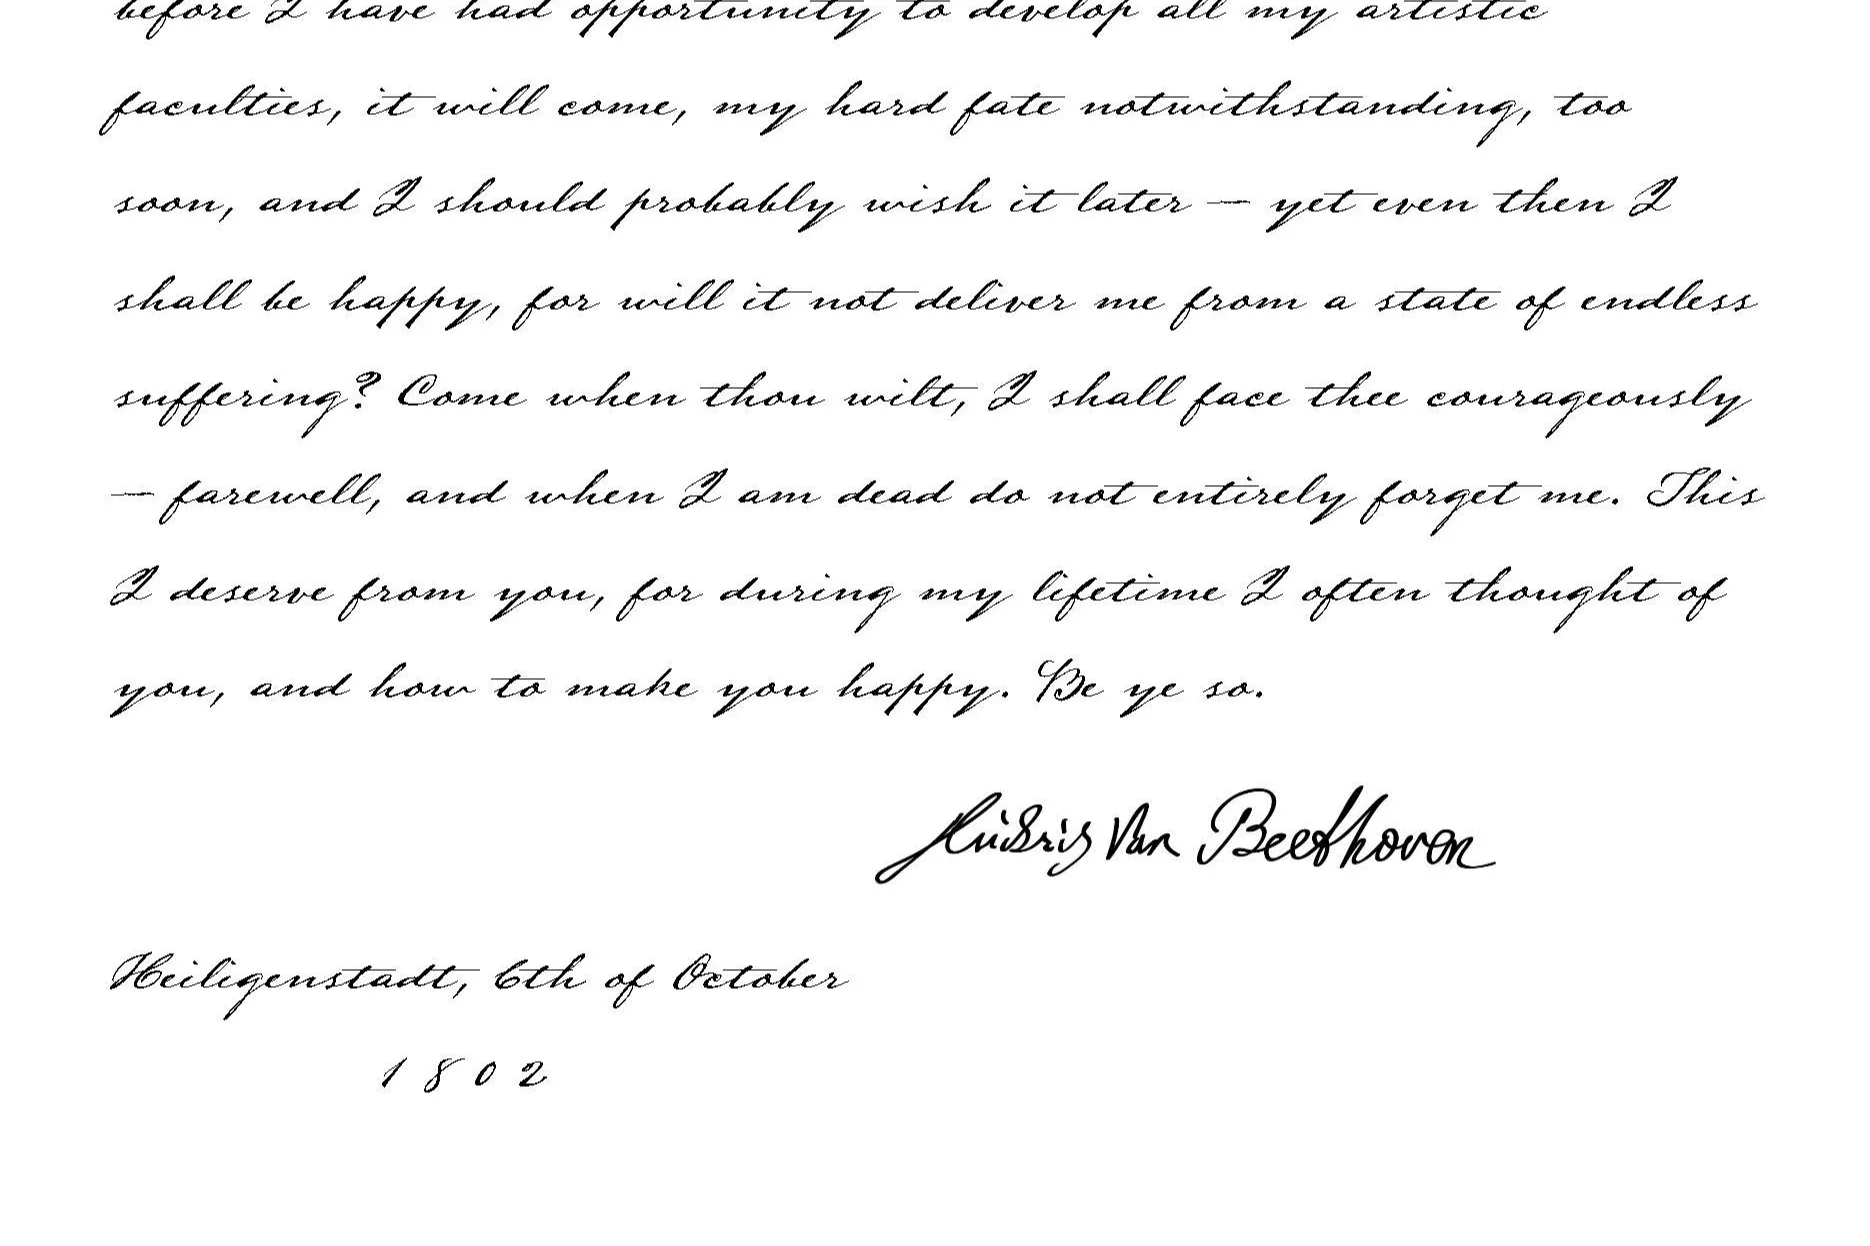 before I have had opportunity to develop all my artistic
faculties, it will come, my hard fate notwithstanding, too
soon, and I should probably wish it later — yet even then I
shall be happy, for will it not deliver me from a state of endless
suffering? Come when thou wilt, I shall face thee courageously
— farewell, and when I am dead do not entirely forget me. This
I deserve from you, for during my lifetime I often thought of
you, and how to make you happy. Be ye so.
Ludwig Van Beethoven
Heiligenstadt, 6th of October
1802